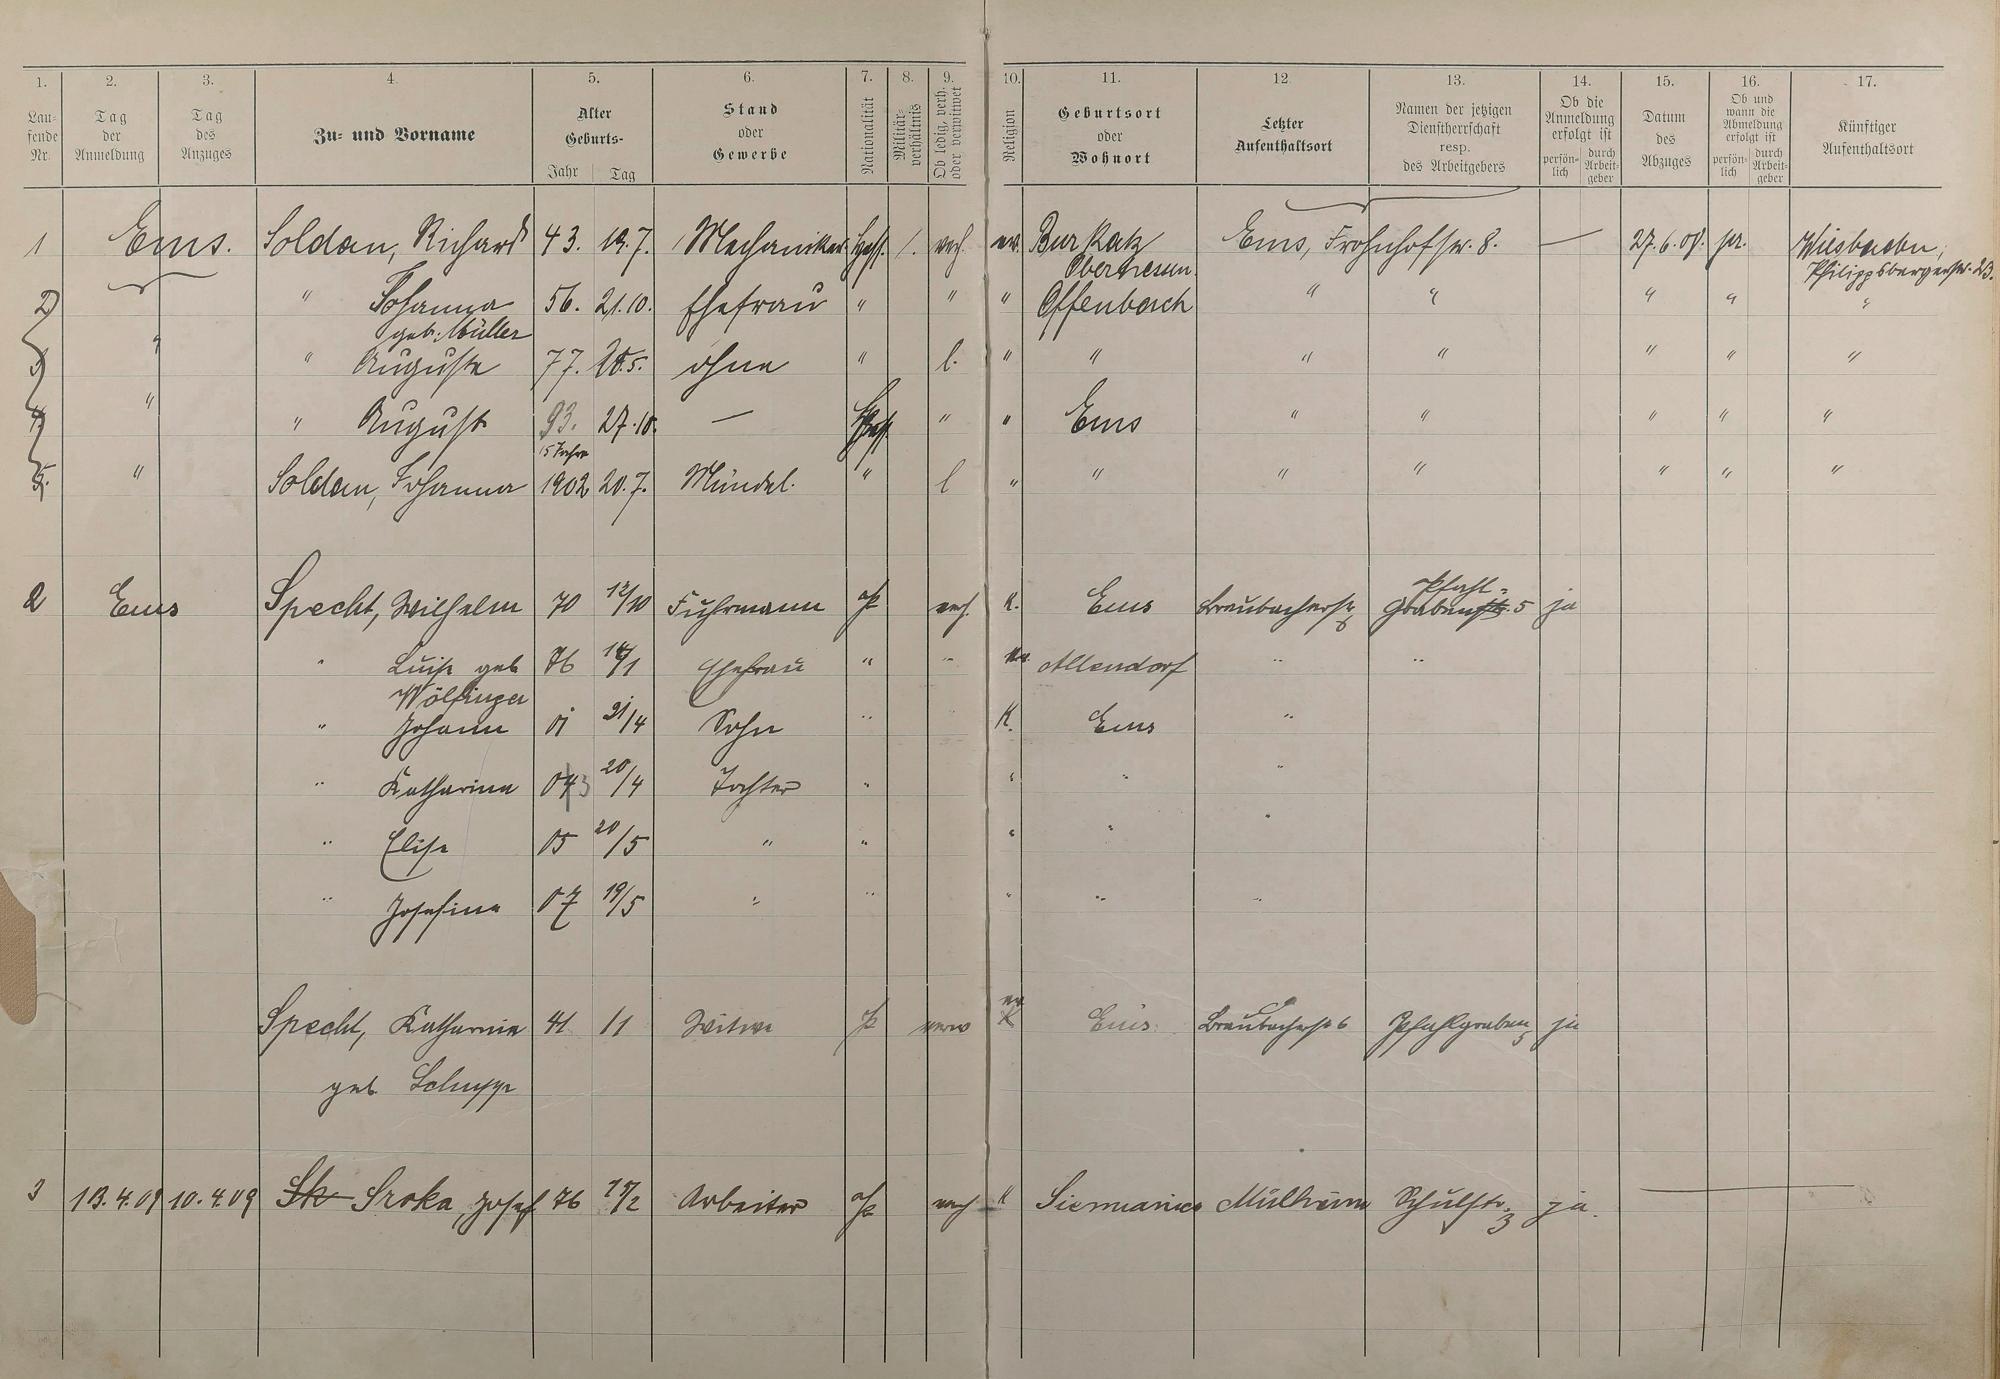 1. 2. 3. 4. 5. 6. 7. 8. 9. 10. 11. 12. 13. 14. 15. 16. 17.
Lau-
fende
Nr.
Tag
der
Anmeldung
Tag
des
Anzuges
Zu- und Vorname
Alter
Geburts-
Jahr Tag
Stand
oder
Gewerbe
Nationalität
Militär-
verhältnis
Ob ledig, verh.
oder verwitwet
Religion
Geburtsort
oder
Wohnort
Letzter
Aufenthaltsort
Namen der jetzigen
Dienstherrschaft
resp.
des Arbeitgebers
Ob die
Anmeldung
erfolgt ist
persön-
lich
durch
Arbeit-
geber
Datum
des
Abzuges
Ob und
wann die
Abmeldung
erfolgt ist
persön-
lich
durch
Arbeit-
geber
Künftiger
Aufenthaltsort
1 Ems. Soldan, Richard 43. 19.7. Mechaniker Hess. /. verh. ev. Ems, Frohnhofstr. 8. — 27.6.08. pr. Wiesbaden,
Philippsbergerstr. 23.
2 " Johanna 56. 21.10. Ehefrau " " " Offenbach " " " " "
geb. Müller
3 " " Auguste 77. ohne " l. " " " " " " "
4 " " August 93. 27.10. — " " Ems " " " " "
15 Jahre
5. " Soldan, Johanna 1902 20.7. Mündel. " l " " " " " " "
2 Ems Specht, Wilhelm 70 12/10 Fuhrmann P verh. K. Ems Braubacherstr. 6 Pfahl-
graben 5 ja
" Luise geb 76 Ehefrau " " ev. Allendorf " "
Wölfinger
" Johann 01 21/4 Sohn " K. Ems "
" Katharina 03 20/4 Tochter " " " "
" Elise 05 20/5 " " " " "
" Josefine 07 19/5 " " " " "
Specht, Katharina 41 11 Witwe P verw ev Ems Braubacherstr 6 Pfahlgraben 5 ja
geb Schupp
3 13.4.09 10.4.09 Sroka, Josef 76 Arbeiter P verh K Siemianice Mülheim Schulstr. 3 ja.